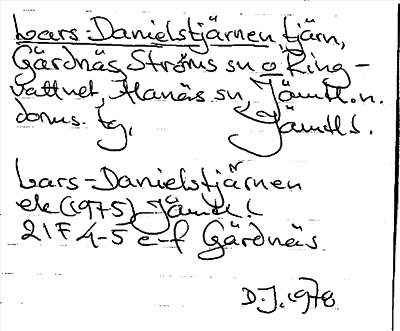 Lars-Danielstjärnen tjärn,
Gärdnäs Ströms sn o Ring-
vattnet, Alanäs sn, Jämtl. n.
doms. tg, Jämtl l.
Lars-Danielstjärnen
ek (1975) Jämtl l
21F 4-5 e-f Gärdnäs
D.J. 1978